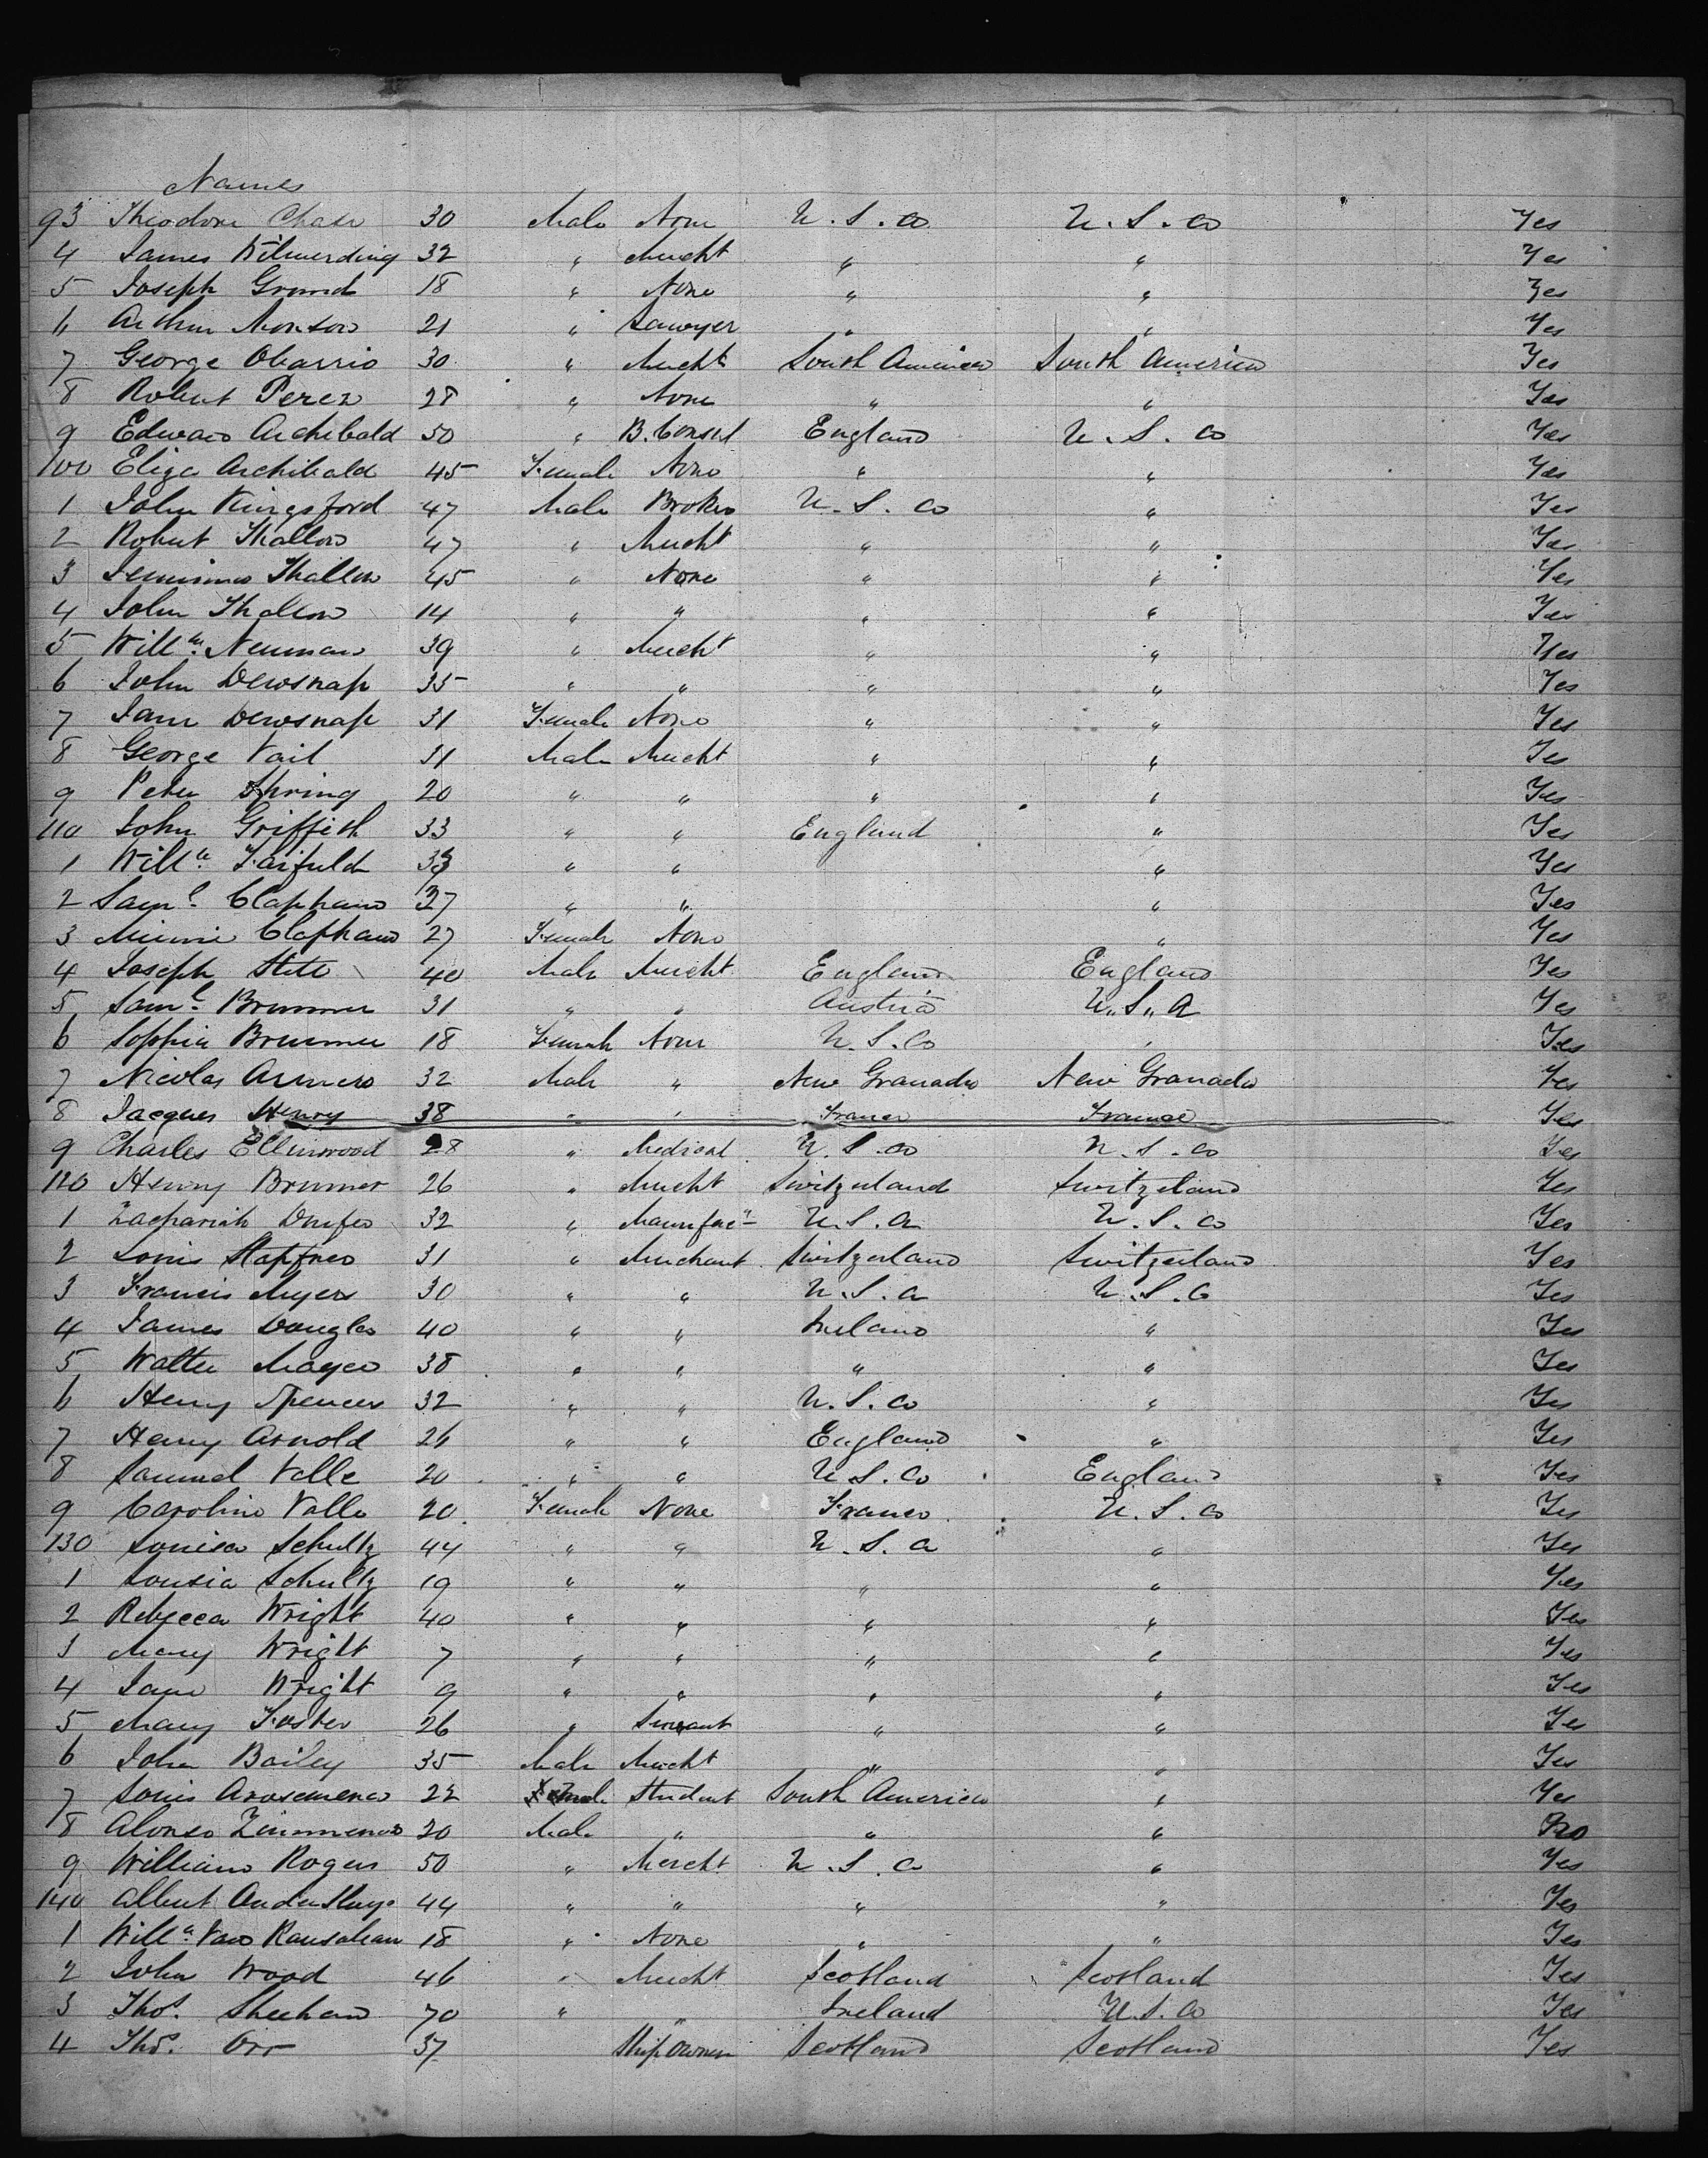 Names
93 Theodore Chase 30 Male None U.S.A U.S.A Yes
4 James Wilmerding 32 " Mercht " " Yes
5 Joseph Grund 18 " None " " Yes
6 Arthur 21 " Lawyer " " Yes
7 George Obarrio 30 " Mercht South America South America Yes
8 Robert Perez 28 " None " " Yes
9 Edward Archibald 50 " B. Consul England U.S.A Yes
100 Eliza Archibald 45 Female None " " Yes
1 John Kingsford 47 Male Broker U.S.A " Yes
2 Robert Thallon 47 " Mercht " " Yes
3 Thallon 45 " None " " Yes
4 John Thallon 14 " " " " Yes
5 Willm. Neuman 39 " Mercht " " Yes
6 John Dewsnap 35 " " " " Yes
7 Jane Dewsnap 31 Female None " " Yes
8 George Vail 31 Male Mercht " " Yes
9 Peter Spring 20 " " " " Yes
110 John Griffith 33 " " England " Yes
1 Willm. Fairfield " " " Yes
2 Saml. Clapham 27 " " " Yes
3 Minnie Clapham 27 Female None " Yes
4 Joseph 40 Male Mercht England England Yes
5 Saml. Brummer 31 " " Austria U.S.A Yes
6 Sophia Brummer 18 Female None U.S.A " Yes
7 Nicolas Armero 32 Male " New Granada New Granada Yes
8 Jacques Henry 38 " " France France Yes
9 Charles Ellinwood 28 " Medical U.S.A U.S.A Yes
120 Henry Brunner 26 " Mercht Switzerland Switzerland Yes
1 Zachariah 32 " Manufacr U.S.A U.S.A Yes
2 Louis Stapfner 31 " Merchant Switzerland Switzerland Yes
3 Francis Myers 30 " " U.S.A U.S.A Yes
4 James Douglas 40 " " Ireland " Yes
5 Walter Magee 38 " " " " Yes
6 Henry Spencer 32 " " U.S.A " Yes
7 Henry Arnold 26 " " England " Yes
8 Samuel Valle 20 " " U.S.A England Yes
9 Caroline Valle 20 Female None France U.S.A Yes
130 Louisa Schultz 44 " " U.S.A " Yes
1 Lousia Schultz 19 " " " " Yes
2 Rebecca Wright 40 " " " " Yes
3 Mary Wright 7 " " " " Yes
4 Jane Wright 9 " " " " Yes
5 Mary Foster 26 " Servant " " Yes
6 John Bailey 35 Male Mercht " " Yes
7 Louis Arosemena 22 Student South America " Yes
8 Alonso Zimmenez 20 Male " " " No
9 William Rogers 50 " Mercht U.S.A " Yes
140 Albert 44 " " " " Yes
1 Willm. Van 18 " None " " Yes
2 John Wood 46 " Mercht Scotland Scotland Yes
3 Thos. Sheehan 70 " " Ireland U.S.A Yes
4 Thos. Orr 37 Ship Owner Scotland Scotland Yes